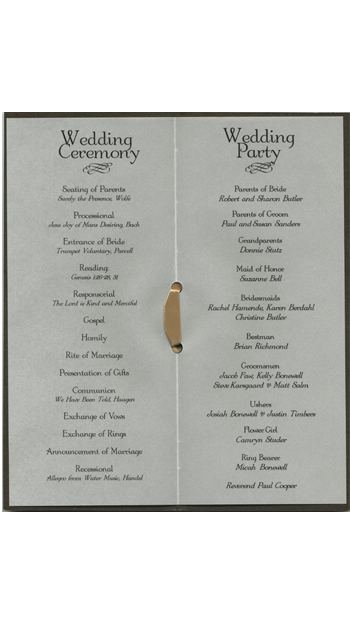 Wedding
Ceremony
Seating of Parents
Processional
Jesu Joy of Mans Desiring, Bach
Entrance of Bride
Trumpet Voluntary, Purcell
Reading
Genesis 1:26-28, 31
Responsorial
The Lord is Kind and Merciful
Gospel
Homily
Rite of Marriage
Presentation of Gifts
Communion
We Have Been Told, Haugen
Exchange of Vows
Exchange of Rings
Announcement of Marriage
Recessional
Allegro from Water Music, Handel
Wedding
Party
Parents of Bride
Robert and Sharon Butler
Parents of Groom
Paul and Susan Sanders
Grandparents
Donnie Stutz
Maid of Honor
Suzanne Bell
Bridesmaids
Rachel Hamende, Karen Berdahl
Christine Butler
Bestman
Brian Richmond
Groomsmen
Jacob Faw, Kelly Bonewell
Steve Karsgaard & Matt Salm
Ushers
Josiah Bonewell & Justin Timbers
Flower Girl
Camryn Studer
Ring Bearer
Micah Bonewell
Reverend Paul Cooper